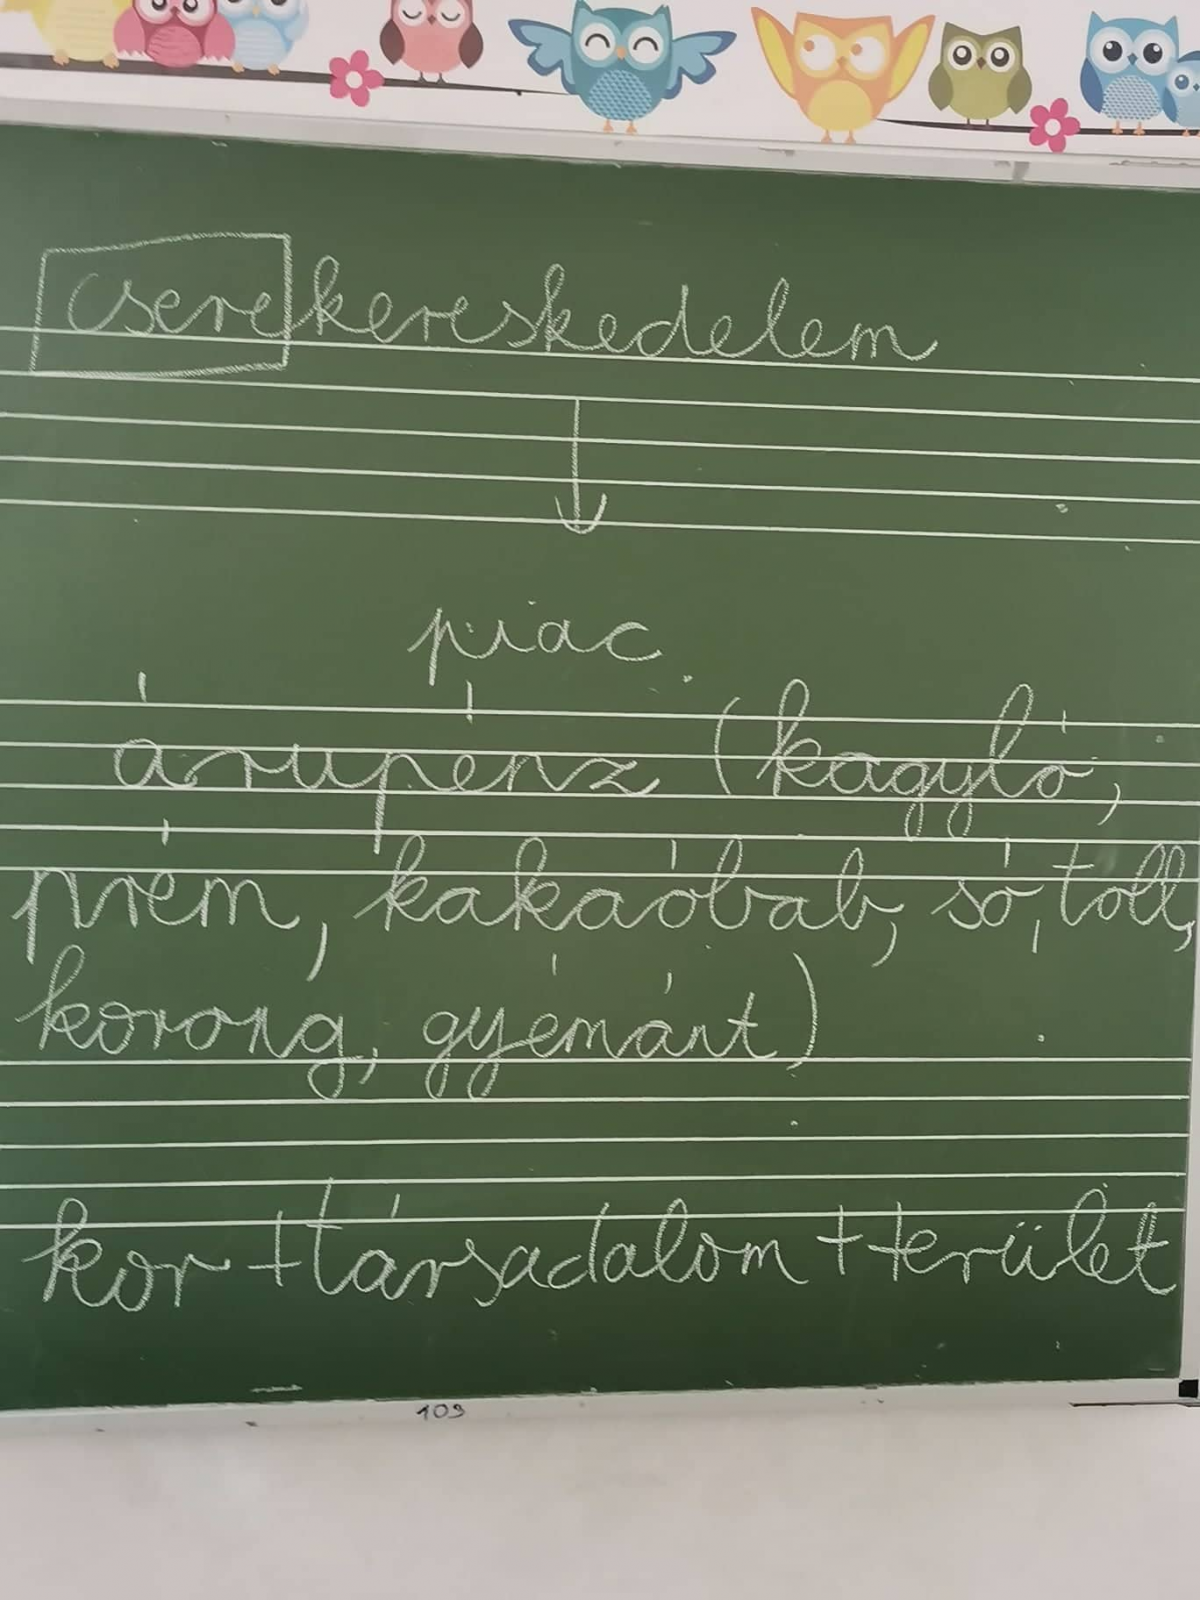 cserekereskedelem
piac
árupénz (kagyló,
prém, kakaóbab, só, toll,
korong, gyémánt)
kor + társadalom + terület
109